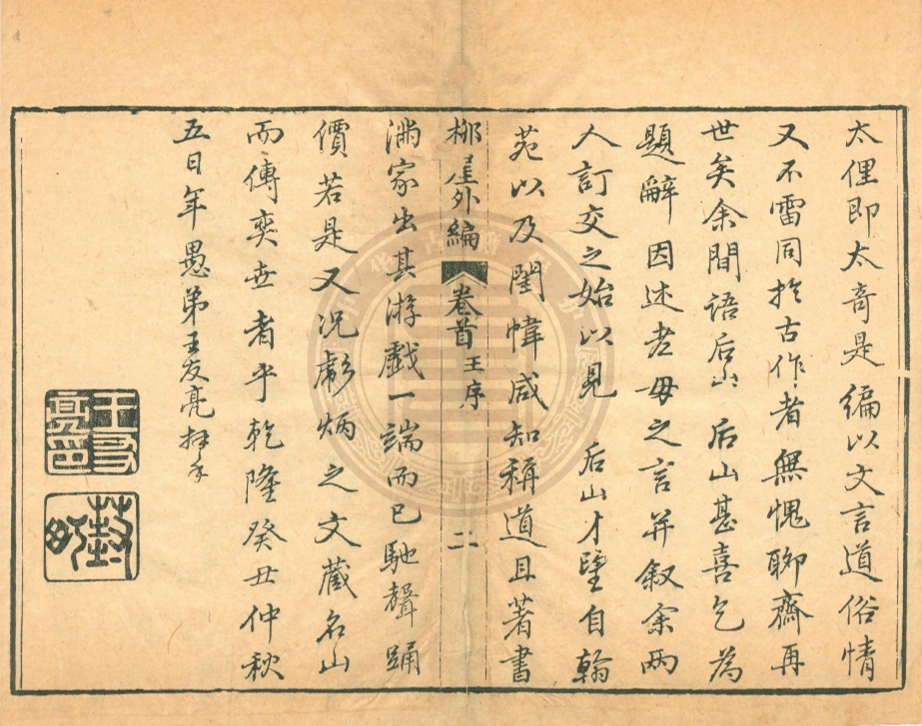 太俚即太奇是編以文言道俗情
又不雷同於古作者無愧聊齋再
世矣余間語后山后山甚喜乞為
題辭因述老母之言并叙余兩
人訂交之始以見 后山才望自翰
苑以及閨幃咸知稱道且著書
柳崖外編 卷首 王序 二
滿家出其游戲一端而已馳聲踊
價若是又況彪炳之文藏名山
而傳奕世者乎乾隆癸丑仲秋
五日年愚弟王友亮拜手
王友亮印